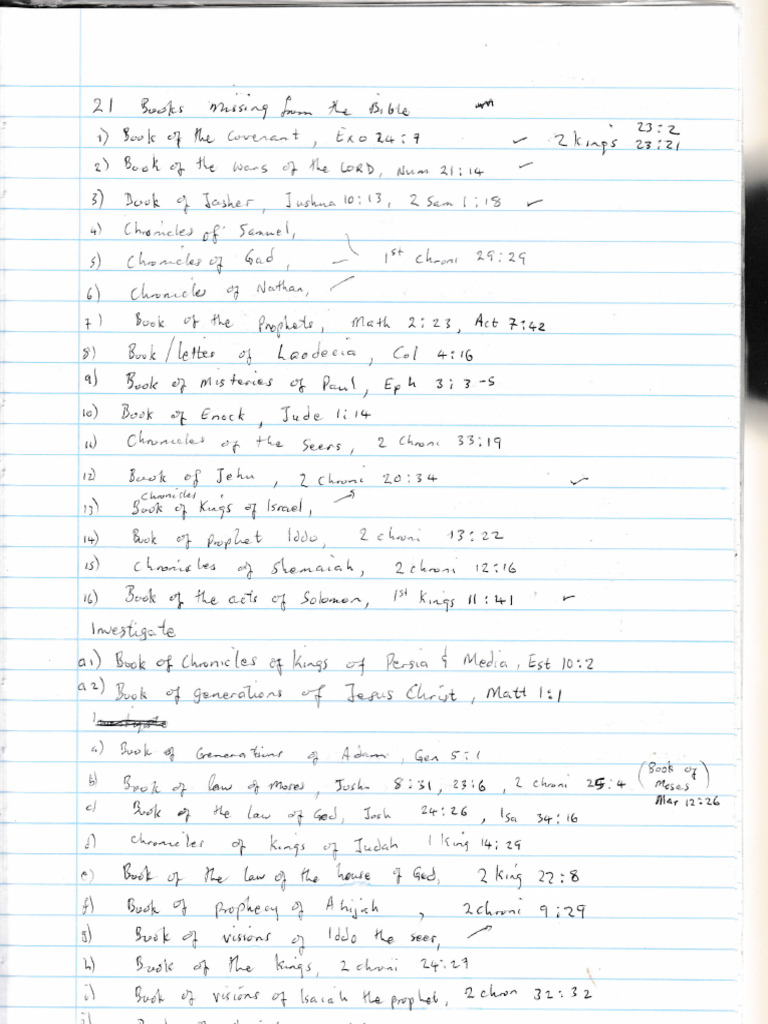 21 Books missing from the Bible
1) Book of the Covenant, Exo 24:7 ✓ 2 Kings 23:2 23:21
2) Book of the wars of the LORD, Num 21:14 ✓
3) Book of Jasher, Jushua 10:13, 2 Sam 1:18 ✓
4) Chronicles of Samuel,
5) Chronicles of Gad, 1st Chroni 29:29
6) Chronicles of Nathan,
7) Book of the Prophets, Math 2:23, Act 7:42
8) Book/letter of Laodecia, Col 4:16
9) Book of misteries of Paul, Eph 3:3-5
10) Book of Enock, Jude 1:14
11) Chronicles of the Seers, 2 Chroni 33:19
12) Book of Jehu, 2 Chroni 20:34 ✓
13) Book Chronicles of Kings of Israel,
14) Book of prophet Iddo, 2 chroni 13:22
15) Chronicles of Shemaiah, 2 chroni 12:16
16) Book of the acts of Solomon, 1st Kings 11:41 ✓
Investigate
a1) Book of Chronicles of Kings of Persia & Media, Est 10:2
a2) Book of generations of Jesus Christ, Matt 1:1
a) Book of Generations of Adam, Gen 5:1
b) Book of law of Moses, Josh 8:31, 23:6, 2 chroni 25:4 (Book of Moses) Mar 12:26
c) Book of the law of God, Josh 24:26, Isa 34:16
d) Chronicles of Kings of Judah 1 King 14:29
e) Book of the law of the house of God, 2 King 22:8
f) Book of prophecy of Ahijah, 2 chroni 9:29
g) Book of visions of Iddo the seer,
h) Book of the Kings, 2 chroni 24:27
i) Book of visions of Isaiah the prophet, 2 chron 32:32